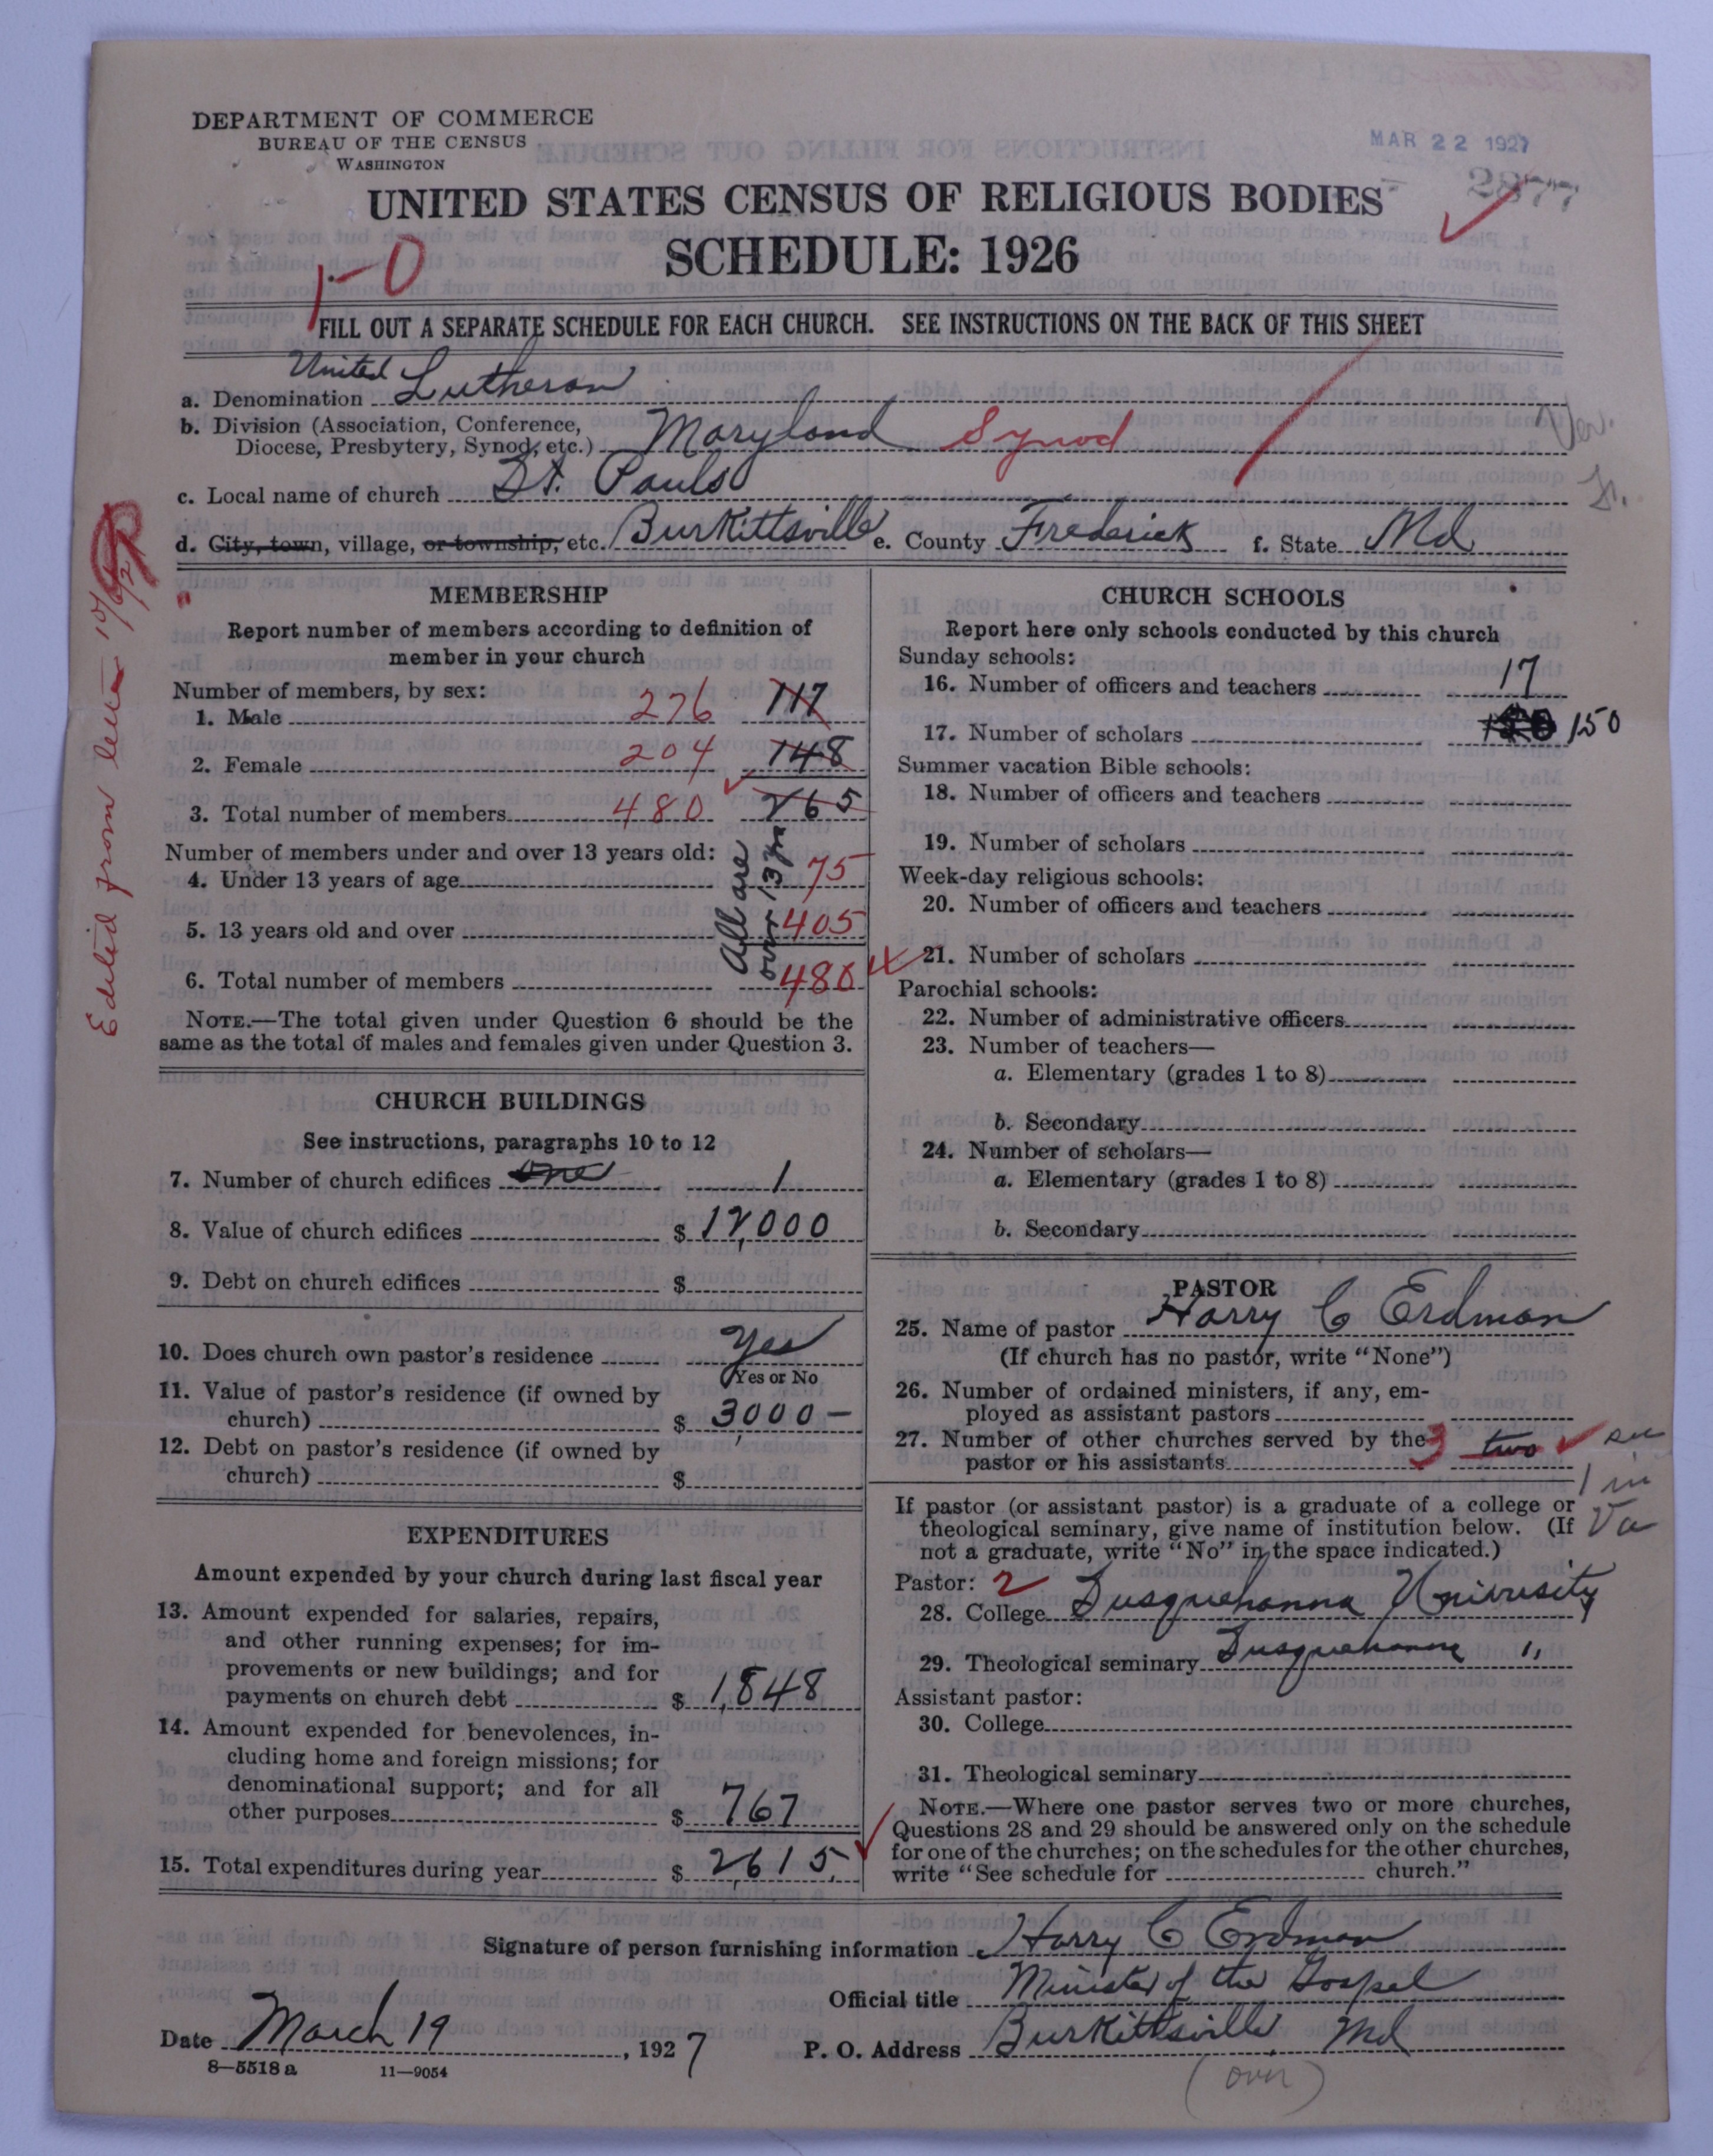 DEPARTMENT OF COMMERCE
BUREAU OF THE CENSUS
WASHINGTON
MAR 22 1927
2877
UNITED STATES CENSUS OF RELIGIOUS BODIES
SCHEDULE: 1926
1-0
FILL OUT A SEPARATE SCHEDULE FOR EACH CHURCH. SEE INSTRUCTIONS ON THE BACK OF THIS SHEET
a. Denomination United Lutheran
b. Division (Association, Conference,
Diocese, Presbytery, Synod, etc.) Maryland Synod
c. Local name of church St. Pauls
d. City, town, village, or township, etc. Burkittsville e. County Frederick f. State Md
Edited from letter
MEMBERSHIP
Report number of members according to definition of
member in your church
Number of members, by sex:
1. Male 276 117
2. Female 204 148
3. Total number of members 480 265
Number of members under and over 13 years old:
4. Under 13 years of age 75
5. 13 years old and over 405
6. Total number of members 480
All are
over 13 yr
NOTE.—The total given under Question 6 should be the
same as the total of males and females given under Question 3.
CHURCH BUILDINGS
See instructions, paragraphs 10 to 12
7. Number of church edifices one 1
8. Value of church edifices $ 12,000
9. Debt on church edifices $
10. Does church own pastor's residence Yes
Yes or No
11. Value of pastor's residence (if owned by
church) $ 3000—
12. Debt on pastor's residence (if owned by
church) $
EXPENDITURES
Amount expended by your church during last fiscal year
13. Amount expended for salaries, repairs,
and other running expenses; for im-
provements or new buildings; and for
payments on church debt $ 1,848
14. Amount expended for benevolences, in-
cluding home and foreign missions; for
denominational support; and for all
other purposes $ 767
15. Total expenditures during year $ 2615
CHURCH SCHOOLS
Report here only schools conducted by this church
Sunday schools:
16. Number of officers and teachers 17
17. Number of scholars 150
Summer vacation Bible schools:
18. Number of officers and teachers
19. Number of scholars
Week-day religious schools:
20. Number of officers and teachers
21. Number of scholars
Parochial schools:
22. Number of administrative officers
23. Number of teachers—
a. Elementary (grades 1 to 8)
b. Secondary
24. Number of scholars—
a. Elementary (grades 1 to 8)
b. Secondary
PASTOR
25. Name of pastor Harry C Erdman
(If church has no pastor, write "None")
26. Number of ordained ministers, if any, em-
ployed as assistant pastors
27. Number of other churches served by the
pastor or his assistants 3 two
1 in
Va
If pastor (or assistant pastor) is a graduate of a college or
theological seminary, give name of institution below. (If
not a graduate, write "No" in the space indicated.)
Pastor: 2
28. College Susquehanna University
29. Theological seminary Susquehanna "
Assistant pastor:
30. College
31. Theological seminary
NOTE.—Where one pastor serves two or more churches,
Questions 28 and 29 should be answered only on the schedule
for one of the churches; on the schedules for the other churches,
write "See schedule for church."
Signature of person furnishing information Harry C Erdman
Official title Minister of the Gospel
Date March 19, 1927 P. O. Address Burkittsville Md
8—5518 a 11—9054
(over)